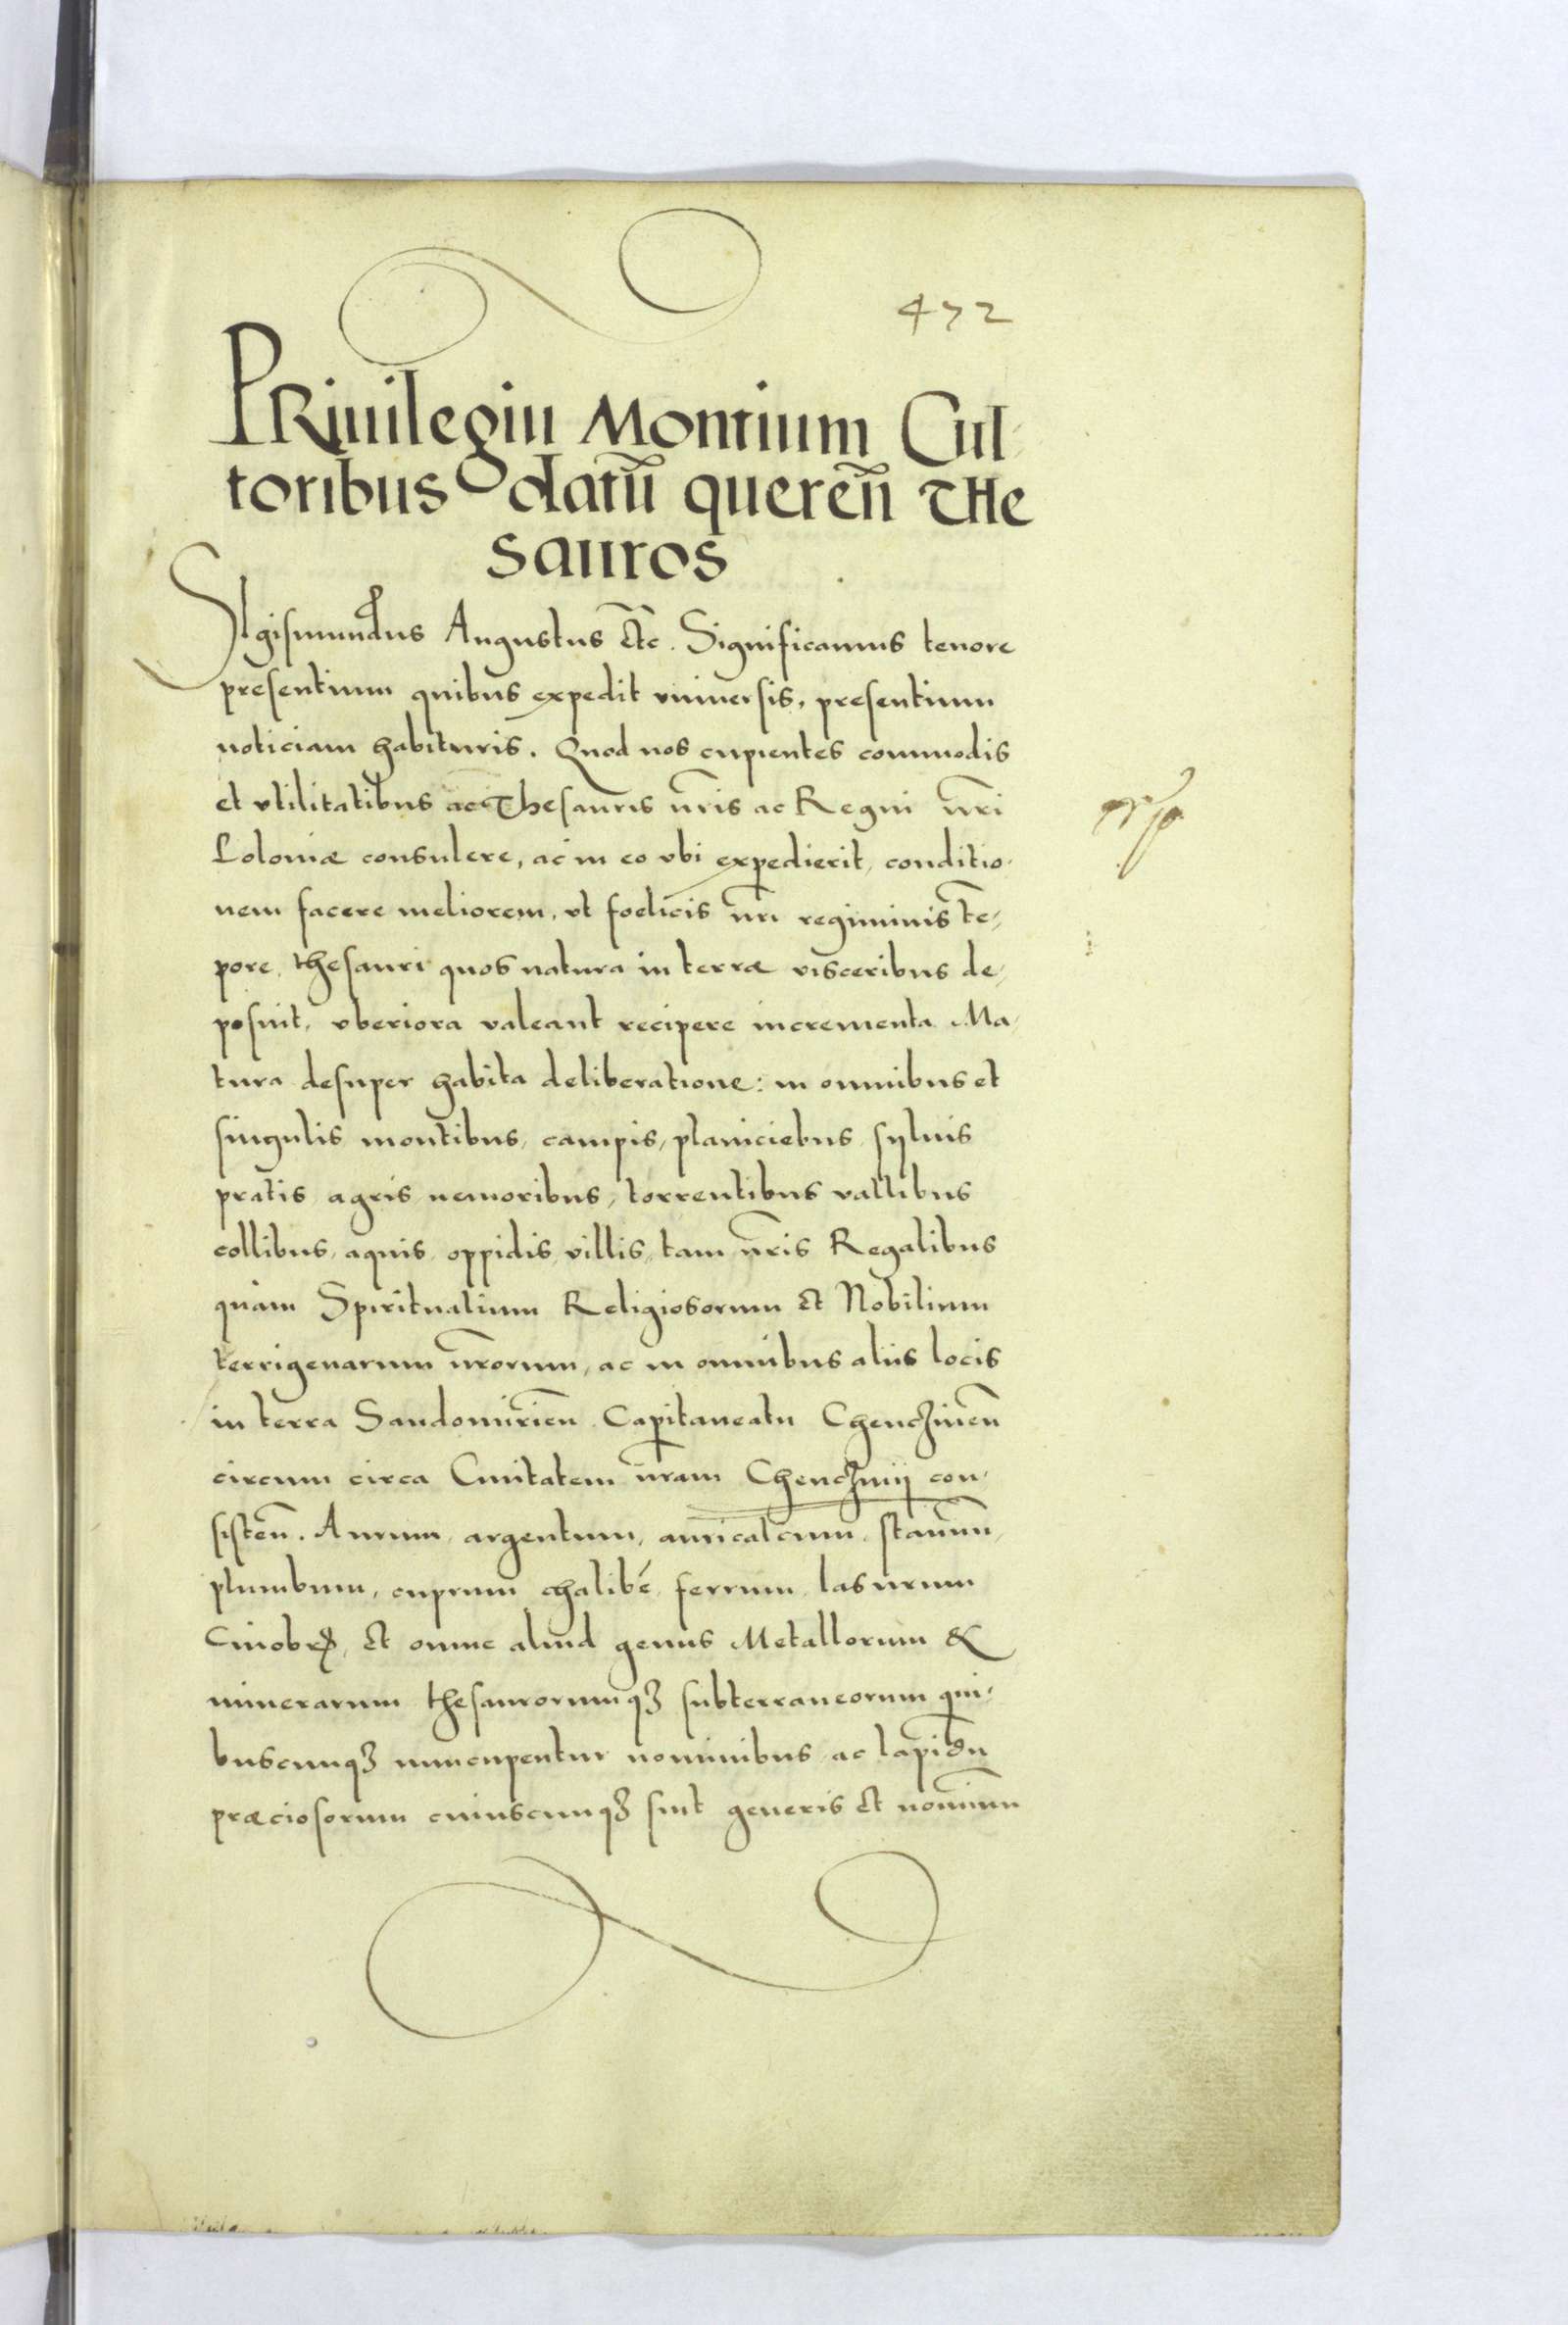 472
PRiuilegiu Montium Cul-
toribus datū querēn THe
sauros
SIgismundus Augustus Etc. Significamus tenore
presentium quibus expedit vniuersis, presentium
noticiam habituris. Quod nos cupientes commodis
et vtilitatibus ac Thesauris nr̃is ac Regni nr̃i
Poloniæ consulere, ac in eo vbi expedierit, conditio-
nem facere meliorem, vt foelicis nr̃i regiminis tē-
pore, thesauri quos natura in terræ visceribus de-
posuit, vberiora valeant recipere incrementa. Ma-
tura desuper habita deliberatione: in omnibus et
singulis montibus, campis, planiciebus, syluis
pratis, agris, nemoribus, torrentibus vallibus
collibus, aquis, oppidis, villis, tam nr̃is Regalibus
quàm Spiritualium Religiosorum Et Nobilium
terrigenarum nr̃orum, ac in omnibus aliis locis
in terra Sandomirieñ Capitaneatu Chenczineñ
circum circa Ciuitatem nr̃am Chenczinij con-
sisteñ. Aurum, argentum, auricalcum, stannum,
plumbum, cuprum chalibē ferrum, lasurum
Cinobrꝫ, Et omne aliud genus Metallorum &
minerarum thesaurorumqꝫ subterraneorum qui-
buscunqꝫ nuncupentur nominibus, ac lapidū
præciosorum cuiuscunqꝫ sint generis Et nominū